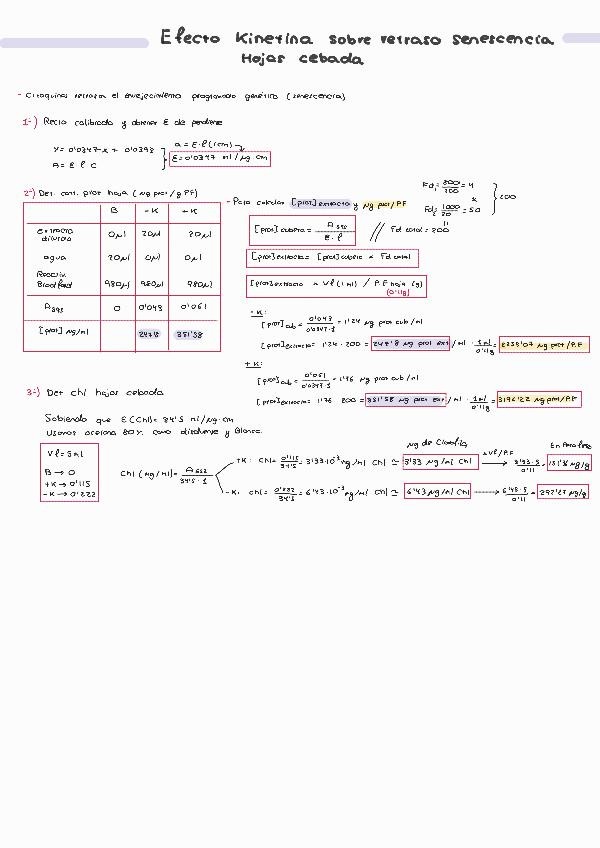 Efecto Kinetina sobre retraso senescencia
Hojas cebada
- Citoquinas retrasan el envejecimiento programado genético (senescencia)
1-) Recta calibrado y obtener E de pendiente
y = 0'0347·x + 0'0393
A = E l C
a = E·l (1cm)
E = 0'0347 ml/µg·cm
2-) Det. cont. prot hoja (µg prot/g PF)
B -K +K
Extracto diluido 0µl 20µl 20µl
agua 20µl 0µl 0µl
Reactiv. Bradford 980µl 980µl 980µl
A595 0 0'043 0'061
[prot] µg/ml 247'8 351'58
- Para calcular [prot]extracto y µg prot/PF
Fd1 = 800/200 = 4
x
Fd2 = 1000/20 = 50
200
[prot]cubeta = A595 / E·l // Fd total = 200
[prot]extracto = [prot]cubeta × Fd total
[prot]extracto × Vf (1ml) / P.F hoja (g)
(0'11g)
-K:
[prot]cub = 0'043/0'0347·1 = 1'24 µg prot cub/ml
[prot]extracto = 1'24 · 200 = 247'8 µg prot ext/ml · 1ml/0'11g =
+K:
[prot]cub = 0'061/0'0347·1 = 1'76 µg prot cub/ml
[prot]extracto = 1'76 · 200 = 351'58 µg prot ext/ml · 1ml/0'11g = 3196'22 µg prot/P.F
3-) Det chl hojas cebada
Sabiendo que E(Chl) = 34'5 ml/µg·cm
Usamos acetona 80% como disolvente y Blanco.
Vf = 5ml
B → 0
+K → 0'115
-K → 0'222
Chl (µg/ml) = A652 / 34'5·1
µg de Clorofila
+K: Chl = 0'115/34'5 = 3'33·10⁻³ µg/ml Chl ≃ 3'33 µg/ml Chl
×Vf/P.F
3'33·5/0'11 = 151'36 µg/g
-K: Chl = 0'222/34'5 = 6'43·10⁻³ µg/ml Chl ≃ 6'43 µg/ml Chl → 6'43·5/0'11 = 292'27 µg/g